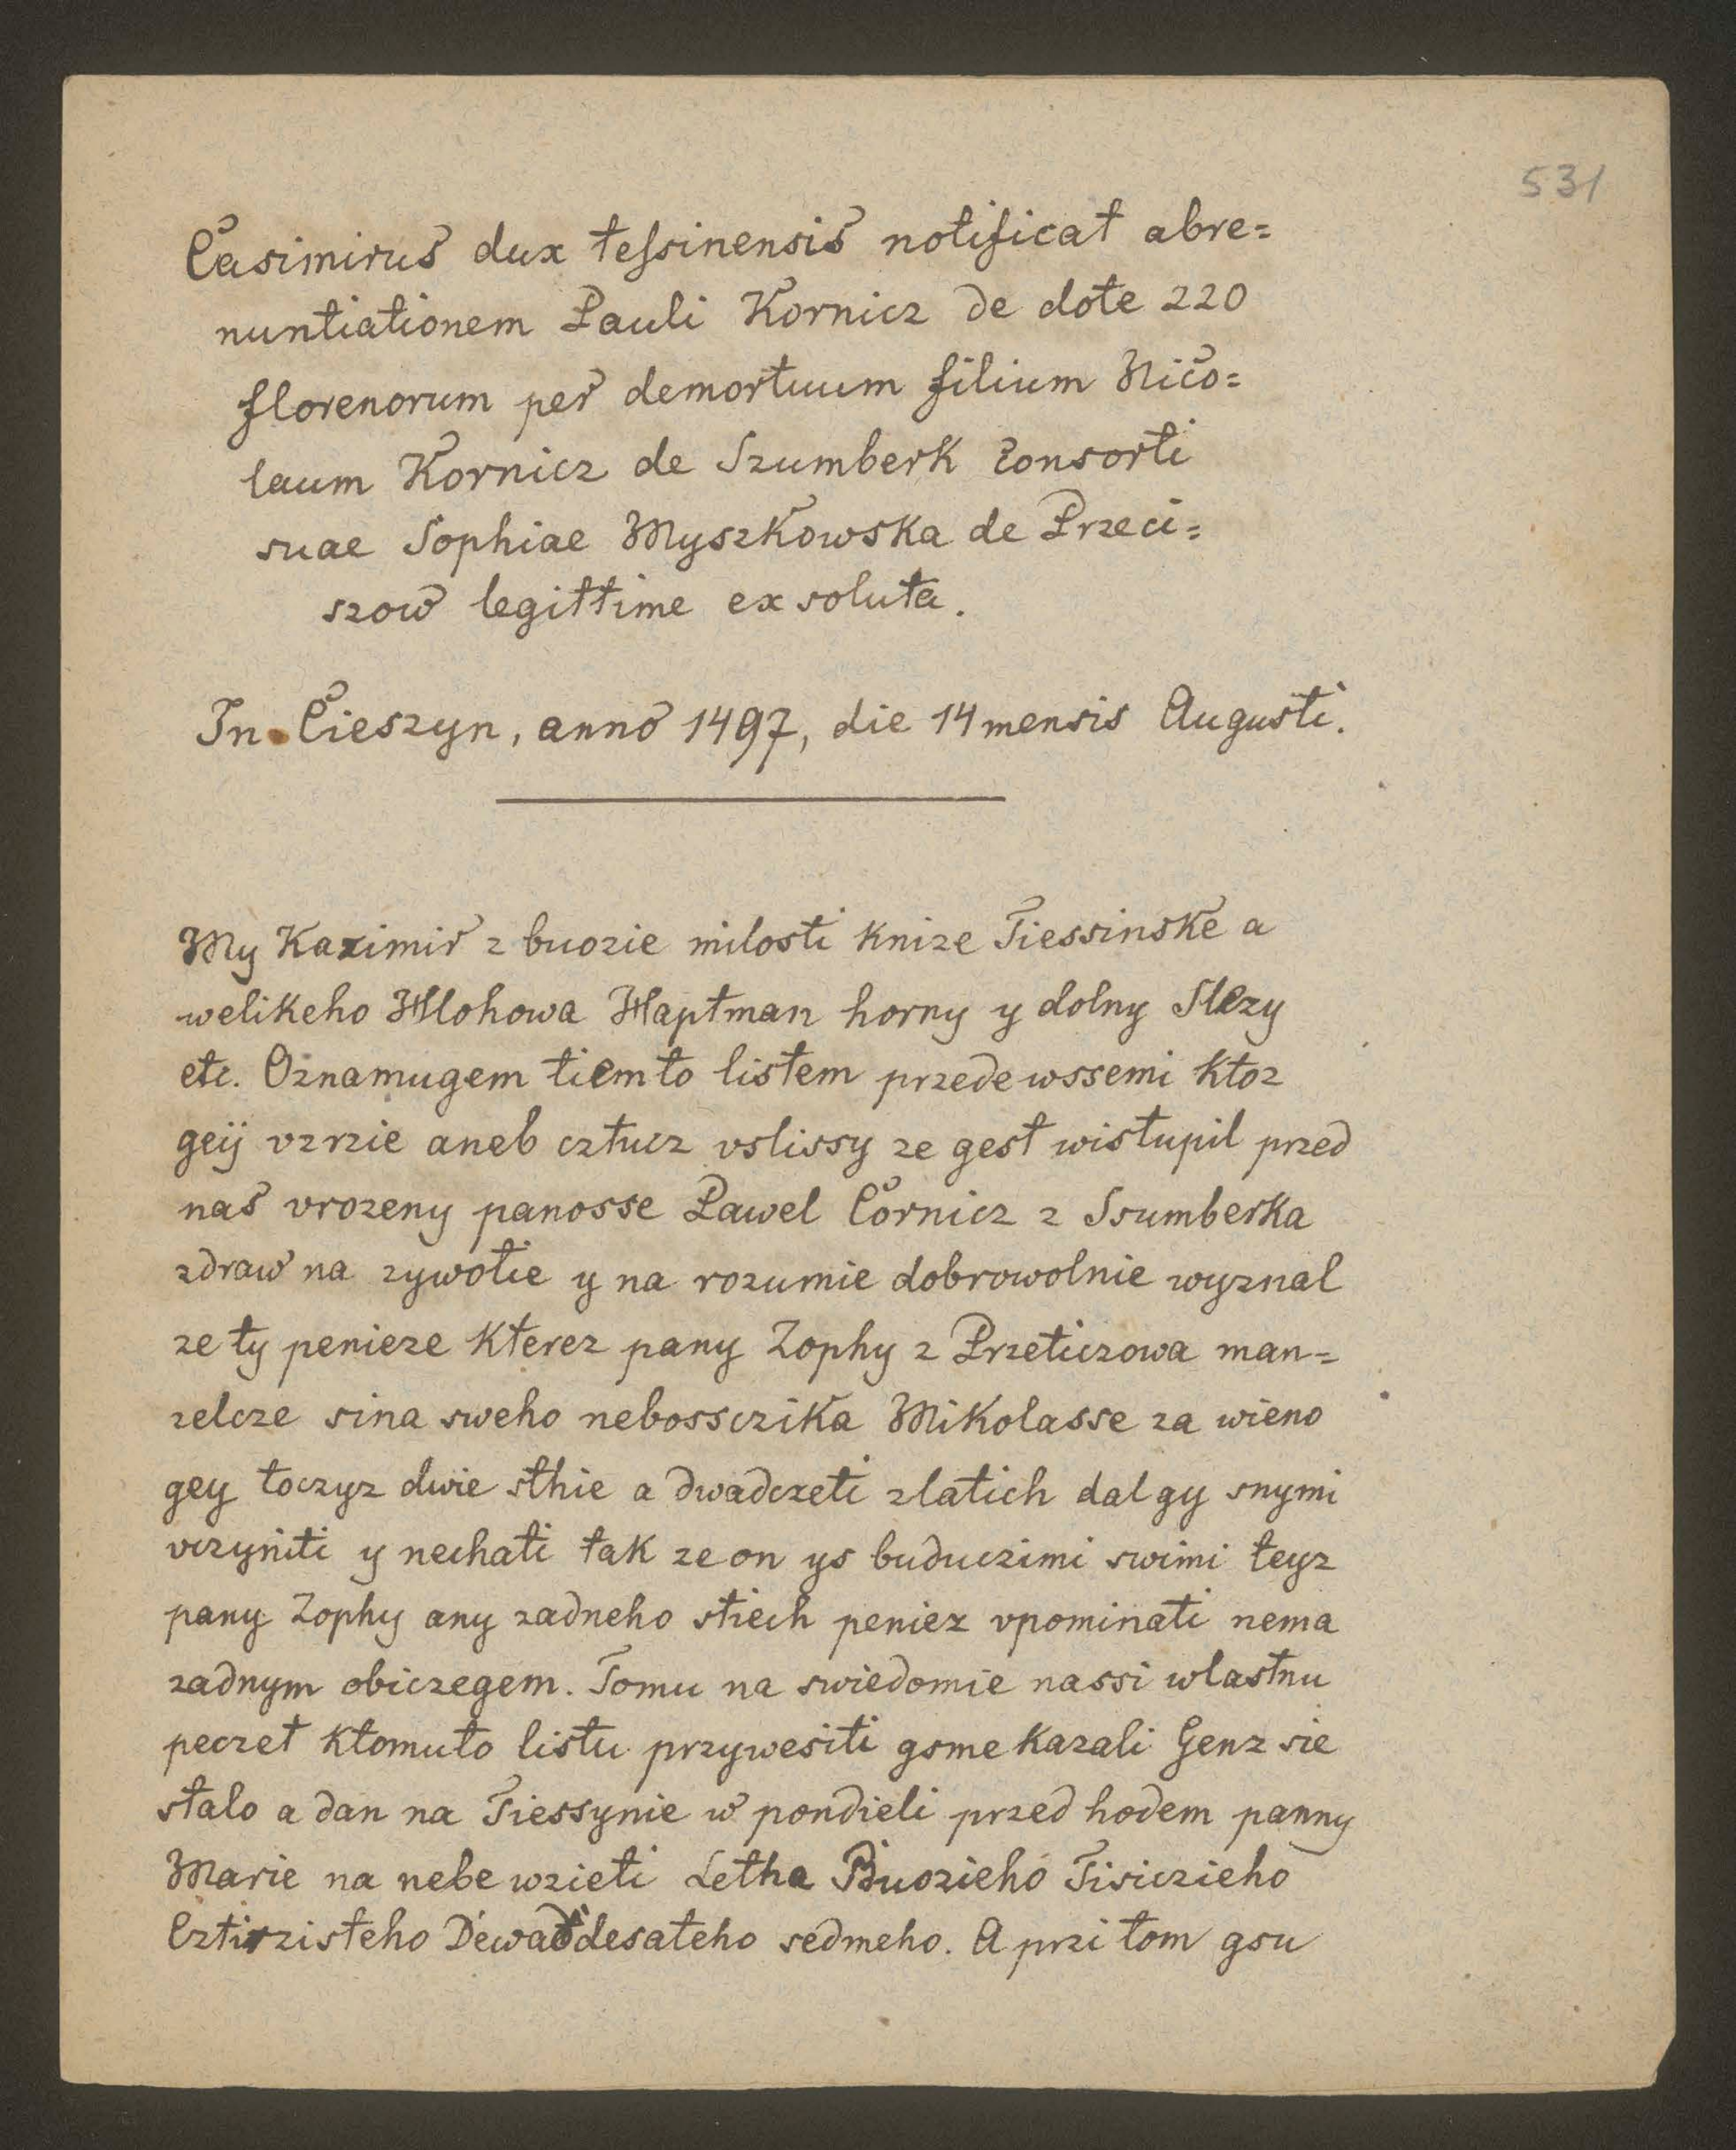 531
Casimirus dux tessinensis notificat abre=
nuntiationem Pauli Kornicz de dote 220
florenorum per demortuum filium Nico=
laum Kornicz de Szumberk consorti
suae Sophiae Myszkowska de Przeci=
szow legittime exsoluta.
In Cieszyn, anno 1497, die 14 mensis Augusti.
My Kazimir z buozie milosti knize Tiessinske a
welikeho Hlohowa Haptman horny y dolny Slezy
etc. Oznamugem tiemto listem przede wssemi ktoz
geij vzrzie aneb cztucz vslissy ze gest wistupil przed
nas vrozeny panosse Pawel Cornicz z Ssumberka
zdraw na zywotie y na rozumie dobrowolnie wyznal
ze ty penieze kterez pany Zophy z Przeticzowa man=
zelcze sina sweho nebossczika Mikolasse za wieno
gey toczyz dwie sthie a dwadczeti zlatich dal gy snymi
vczyniti y nechati tak ze on ys buduczimi swimi teyz
pany Zophy any zadneho stiech peniez vpominati nema
zadnym obiczegem. Tomu na swiedomie nassi wlastnu
peczet ktomuto listu przywesiti gsme kazali Genz sie
stalo a dan na Tiessynie w pondieli przed hodem panny
Marie na nebe wzieti Letha Buozieho Tisiczieho
Cztirzisteho Dewatdesateho sedmeho. A przi tom gsu